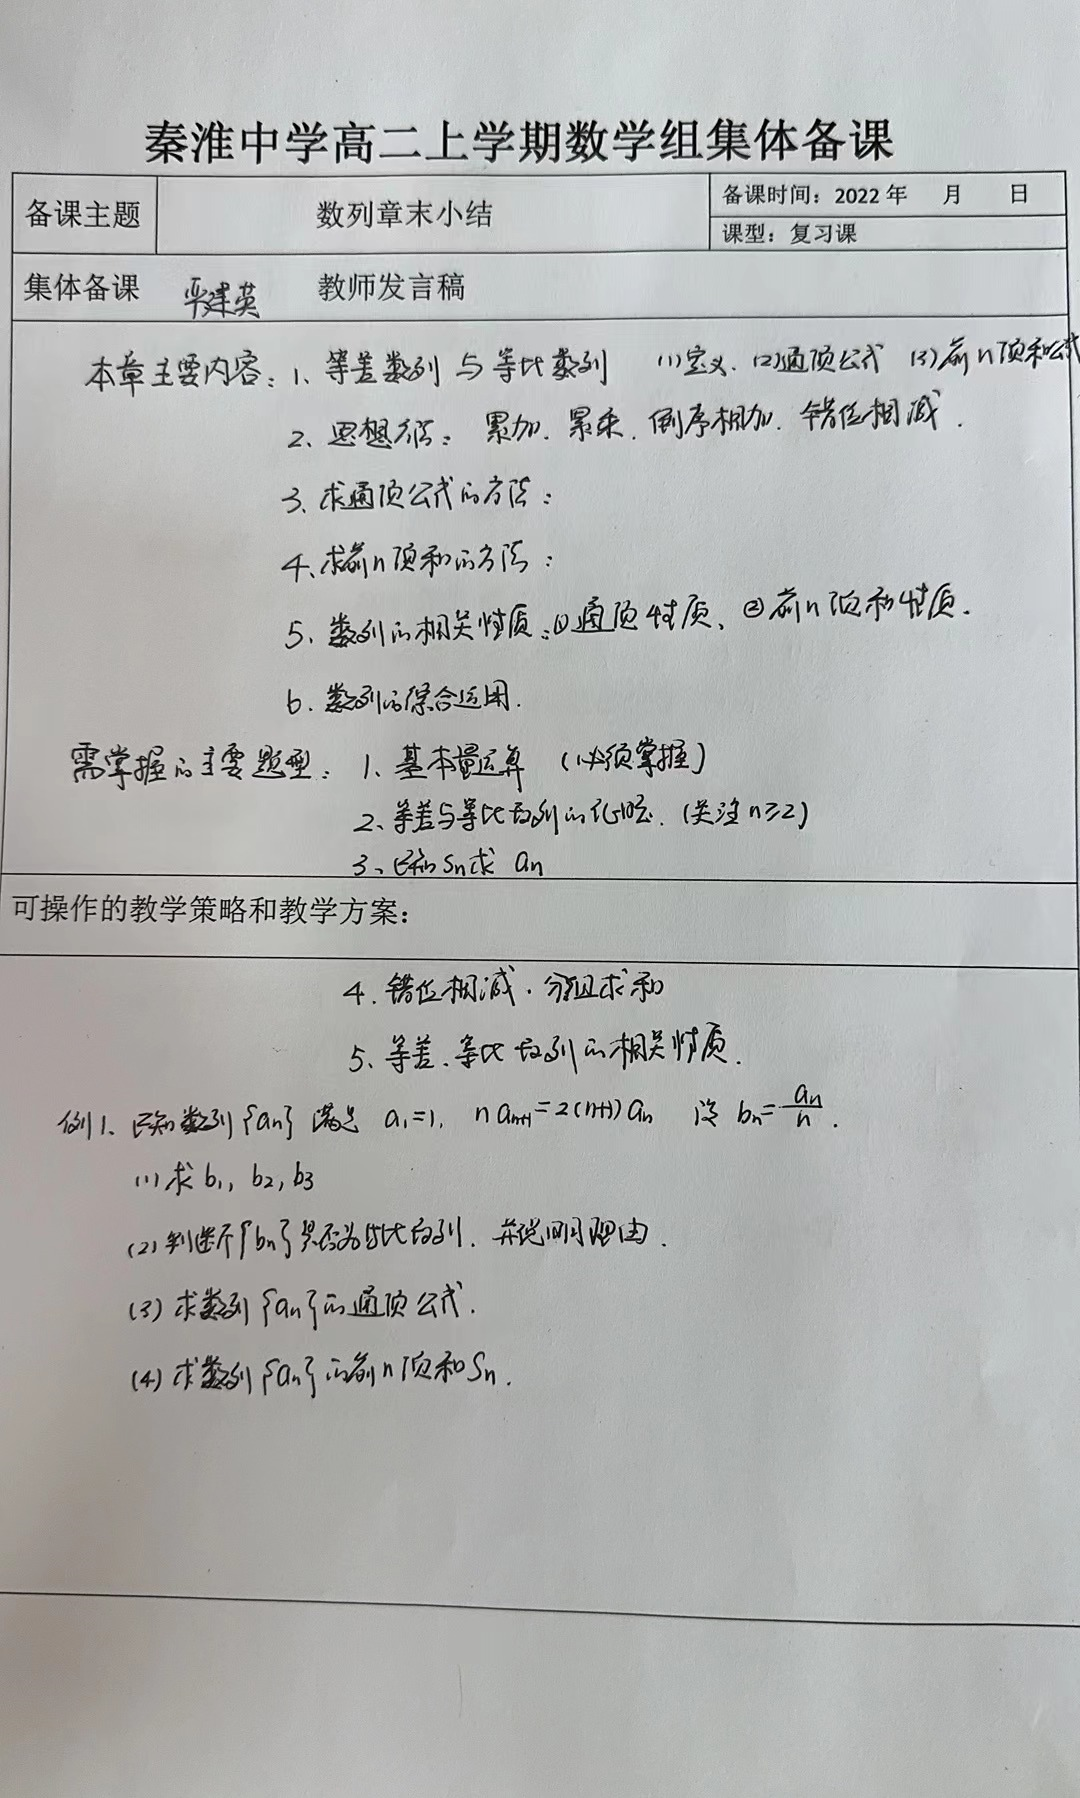 秦淮中学高二上学期数学组集体备课
备课主题 数列章末小结 备课时间：2022年 月 日
课型：复习课
集体备课 严建英 教师发言稿
本章主要内容：1、等差数列与等比数列 (1)定义、(2)通项公式 (3)前n项和公式
2、思想方法：累加、累乘、倒序相加、错位相减.
3、求通项公式的方法：
4、求前n项和的方法：
5、数列的相关性质：①通项性质、②前n项和性质.
6、数列的综合运用.
需掌握的主要题型：1、基本量运算 (必须掌握)
2、等差与等比数列的证明. (关注n≥2)
3、已知Sn求 an
可操作的教学策略和教学方案：
4、错位相减、分组求和
5、等差、等比数列的相关性质.
例1、已知数列{an} 满足 a₁=1, n aₙ₊₁=2(n+1)aₙ 设 bₙ=aₙ/n.
(1)求b₁, b₂, b₃
(2)判断{bn}是否为等比数列, 并说明理由.
(3)求数列{an}的通项公式.
(4)求数列{an}的前n项和Sn.